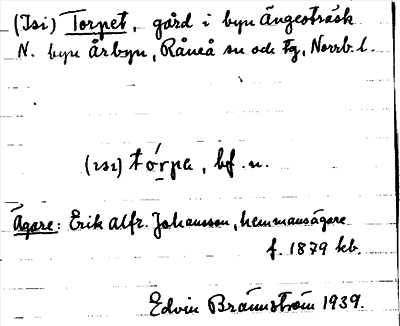 (Isi) Torpet, gård i byn Ängesträsk
N. byn Årbyn, Råneå sn och tg, Norrb. l.
(ɩsɩ) tórpa, bf. n.
Ägare: Erik Alfr. Johansson, hemmansägare
f. 1879 kb.
Edvin Brännström 1939.